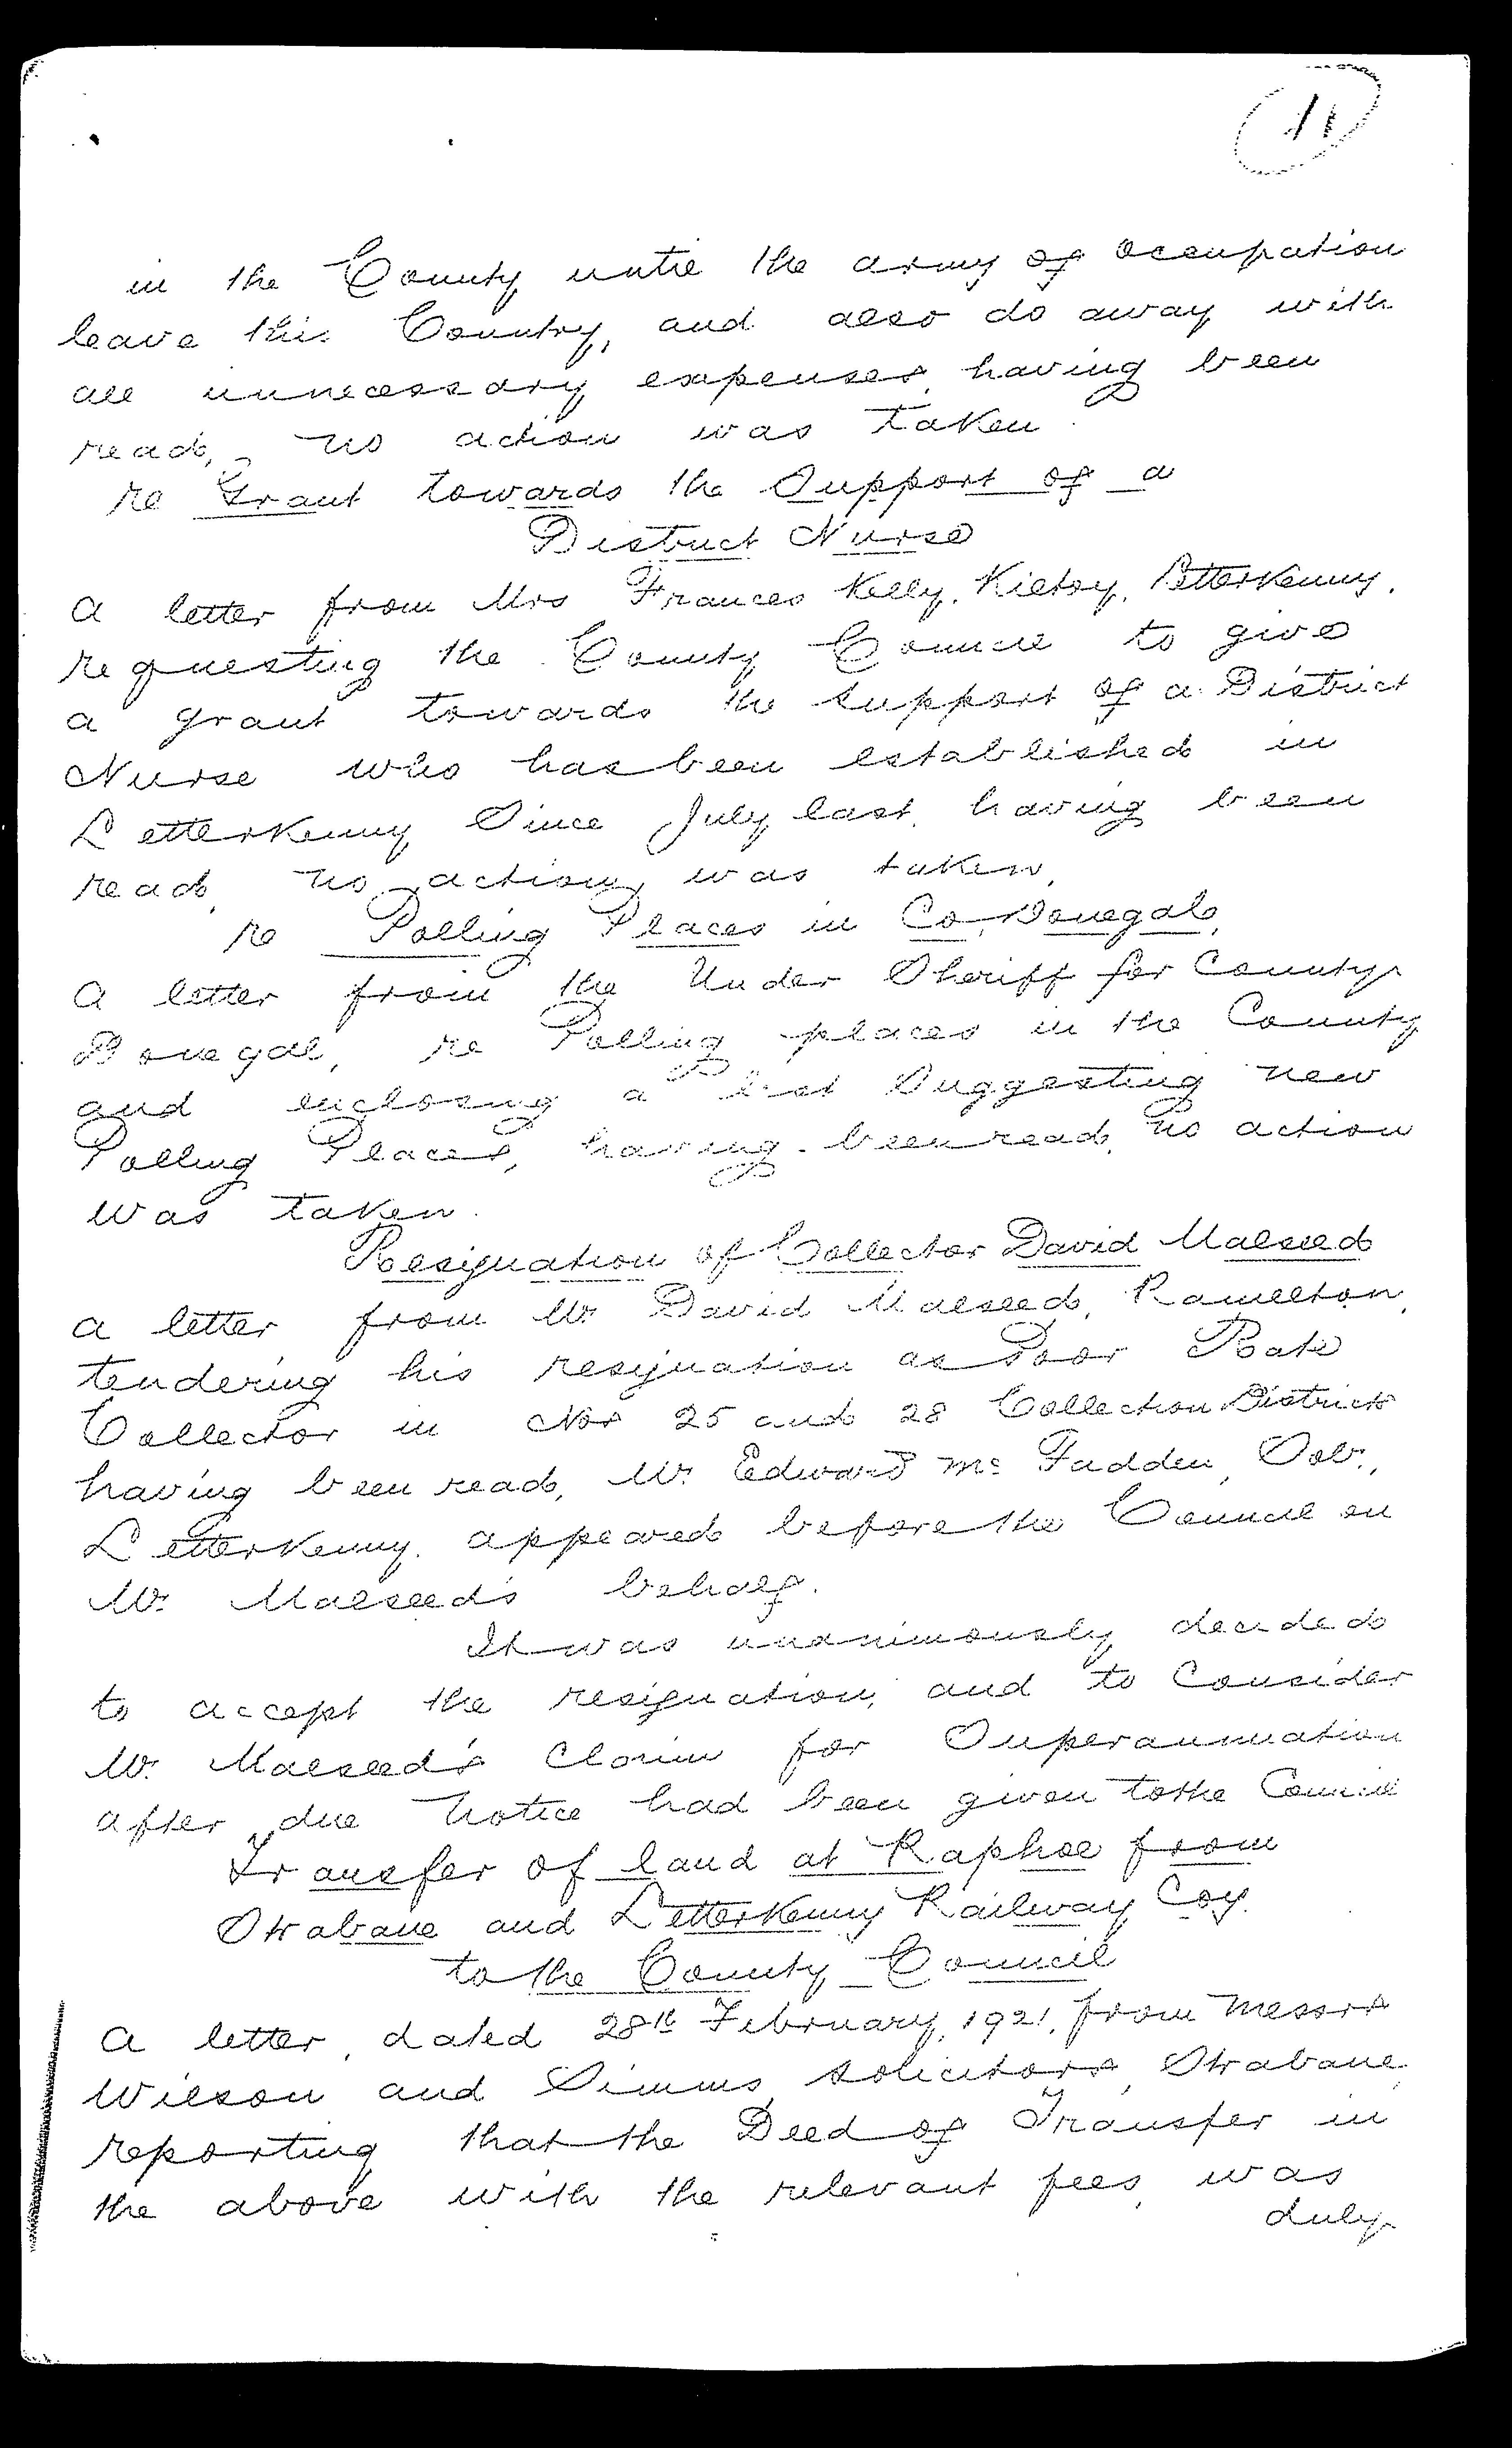 11
in the County until the army of occupation
leave this Country, and also do away with
all unnecessary expenses, having been
read, no action was taken.
re Grant towards the Support of a
District Nurse
A letter from Mrs Frances Kelly, Kiltoy, Letterkenny,
requesting the County Council to give
a grant towards the support of a District
Nurse who has been established in
Letterkenny Since July last, having been
read, no action was taken.
re Polling Places in Co. Donegal,
A letter from the Under Sheriff for County
Donegal, re Polling places in the County
and enclosing a list Suggesting new
Polling Places, having been read, no action
was taken.
Resignation of Collector David Malseed
A letter from Mr David Malseed, Ramelton,
tendering his resignation as Poor Rate
Collector in Nos 25 and 28 Collection Districts
having been read, Mr. Edward Mc Fadden, Solr.,
Letterkenny, appeared before the Council on
Mr. Malseed's behalf.
It was unanimously decided
to accept the resignation, and to Consider
Mr. Malseed's Claim for Superannuation
after due notice had been given to the Council
Transfer of land at Raphoe from
Strabane and Letterkenny Railway Coy.
to the County Council
A letter, dated 28th February, 1921, from Messrs
Wilson and Simms, solicitors, Strabane,
reporting that the Deed of Transfer in
the above with the relevant fees, was
duly